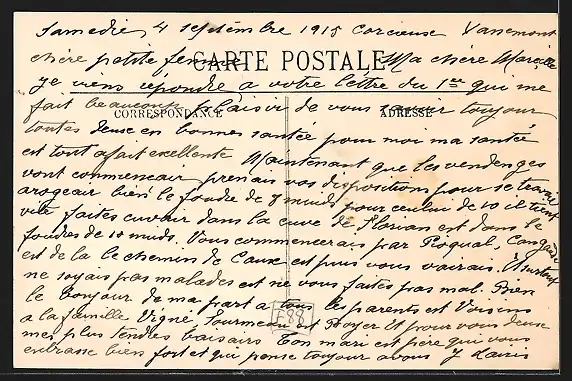 Samedie, 4 septembre 1915 Corcieuse Vansemont
chère petite femme Ma chère Marcelle
CARTE POSTALE
Je viens répondre a votre lettre du 1er qui me
fait beaucoup plaisir de vous savoir toujour
CORRESPONDANCE ADRESSE
toutes deuse en bonnes santée pour moi ma santée
est tout afait exellente Maintenant que les vendenges
vont commencair prenais vos dispositions pour se travail
arogeair bien le foudre de 8 muids pour celui de 10 il tient
vite faites cuvair dans la cuve de Florian est dans le
foudres de 10 muids. Vous commencerais par Roqual,
est de la le chemin de Caux est puis vous vairais. Surtout
ne soyais pas malades est ne vous faites pas mal. Bien
le bonjour de ma part a tous les parents est Voisins
a la famille Vigné Fourmeau est Royer Et pour vous deuse
mes plus tendres baisairs Ton mari est père qui vous
enbrasse bien fort et qui pense toujour a vous
E88